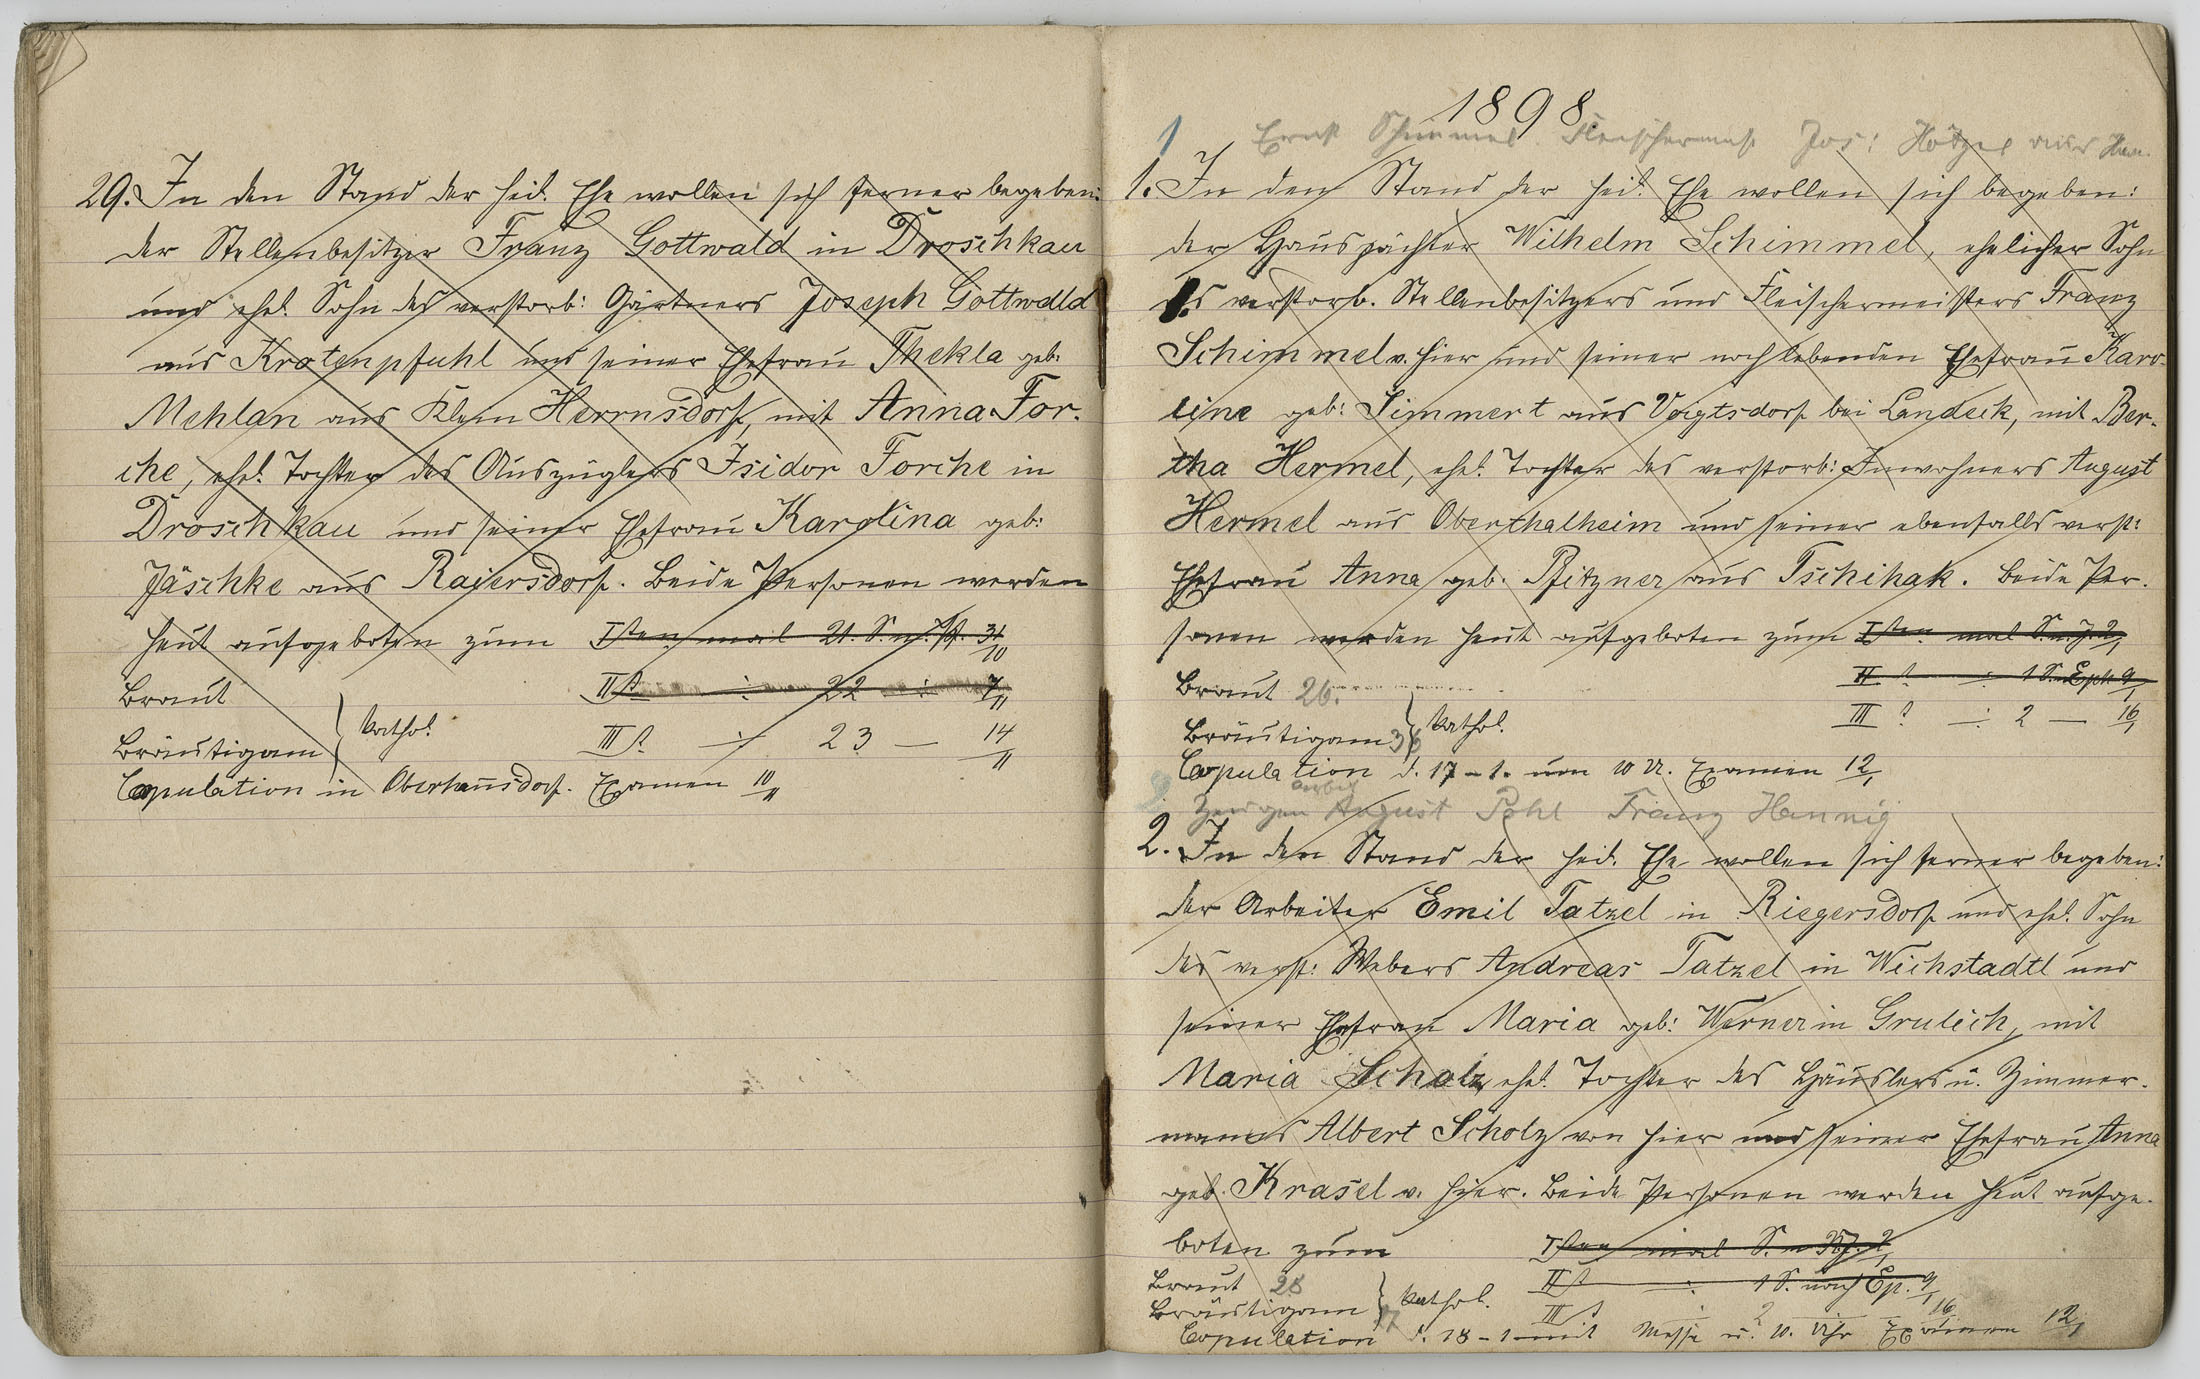 29. In den Stand der heil. Ehe wollen sich ferner begeben:
der Stellenbesitzer Franz Gottwald in Droschkau
und ehel. Sohn des verstorb: Gärtners Joseph Gottwald
aus Krotenpfuhl und seiner Ehefrau Thekla geb:
Mehlan aus Klein Herrnsdorf, mit Anna For-
che, ehel. Tochter des Auszüglers Isidor Forche in
Droschkau und seiner Ehefrau Karolina geb:
Jäschke aus Raiersdorf. Beide Personen werden
heut aufgeboten zum Isten mal 21. S. n. Pf. 31/10
Braut IIt ÷ 22 ÷ 7/11
Bräutigam } kathol. IIIt ÷ 23 — 14/11
Copulation in Oberhannsdorf. Examen 10/11
1898.
1 Ernst Schimmel Fleischermst. Jos: Hötzel
1. In den Stand der heil. Ehe wollen sich begeben:
der Hauspächter Wilhelm Schimmel, ehelicher Sohn
des verstorb. Stellenbesitzers und Fleischermeisters Franz
Schimmel v. hier und seiner noch lebenden Ehefrau Karo-
line geb: Simmert aus Voigtsdorf bei Landeck, mit Ber-
tha Hermel, ehel. Tochter des verstorb: Inwohners August
Hermel aus Oberthalheim und seiner ebenfalls verst:
Ehefrau Anna geb. Pfitzner aus Tschihak. Beide Per-
sonen werden heut aufgeboten zum Isten mal S. n. J. 2/1
Braut 26. II t ÷ 1 S. n Eph 9/1
Bräutigam 36 } kathol. III t ÷ 2 — 16/1
Copulation d. 17-1. um 10 U. Examen 12/1
2. Zeugen Arbei August Pohl Franz Hannig
2. In den Stand der heil. Ehe wollen sich ferner begeben:
der Arbeiter Emil Tatzel in Riegersdorf und ehel. Sohn
des verst: Webers Andreas Tatzel in Wichstadtl und
seiner Ehefrau Maria geb: Werner in Grulich, mit
Maria Scholz, ehel. Tochter des Häuslers u. Zimmer-
manns Albert Scholz von hier und seiner Ehefrau Anna
geb. Krasel v. hier. Beide Personen werden heut aufge-
boten zum Isten mal S. n 2/1
Braut 28 II t ÷ 1 S. nach Ep. 9/1
Bräutigam 27 } kathol. III t ÷ 2 16/1
Copulation d. 18-1 mit Messe u. 10. Uhr Examen 12/1